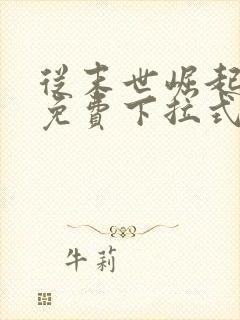 从末世崛起
免费下拉式
牛莉